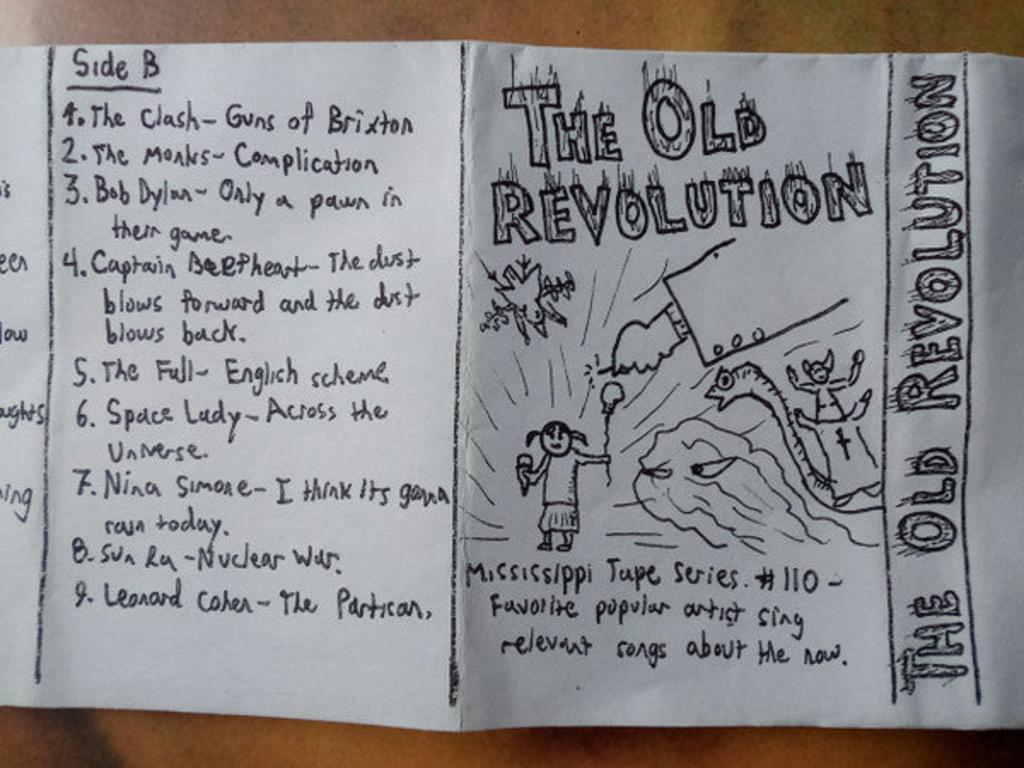 Side B
1. The Clash- Guns of Brixton
2. The Monks- Complication
3. Bob Dylan- Only a pawn in
their game.
4. Captain Beefheart- The dust
blows forward and the dust
blows back.
5. The Fall- English scheme
6. Space Lady- Across the
Universe.
7. Nina Simone- I think its gonna
rain today.
8. Sun Ra -Nuclear War.
9. Leonard Cohen- The Partisan.
THE OLD
REVOLUTION
Mississippi Tape Series. #110-
Favorite popular artist sing
relevant songs about the now.
THE OLD REVOLUTION